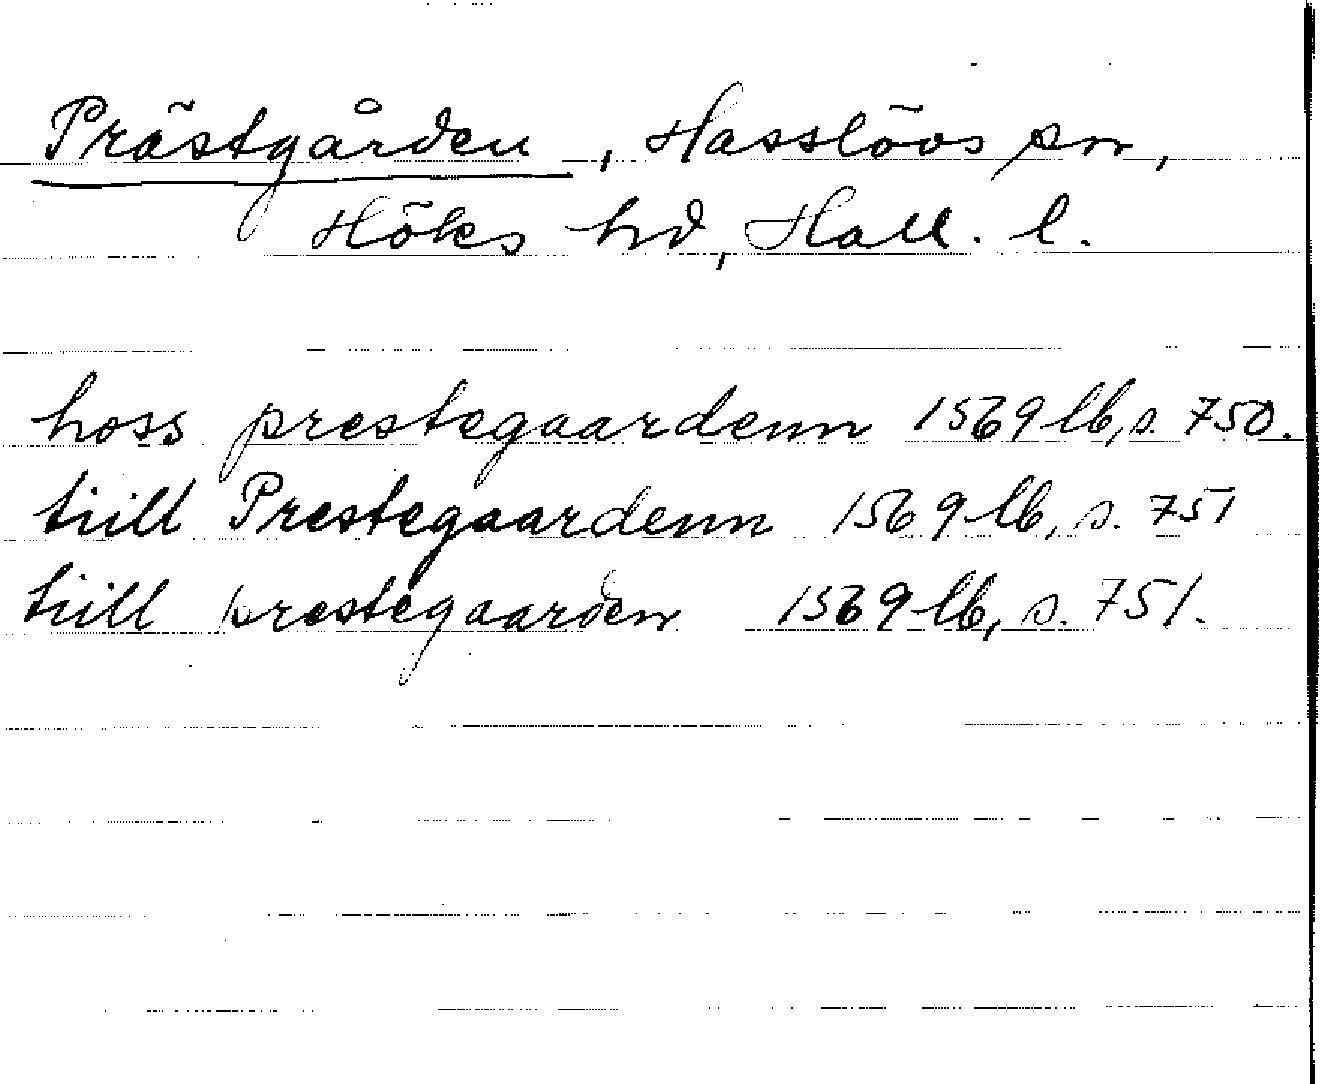 Prästgården, Hasslövs sn,
Höks hd, Hall. l.
hoss prestegaardenn 1569 lb, s. 750.
tiill Prestegaardenn 1569 lb, s. 751
tiill prestegaarden 1569 lb, s. 751.